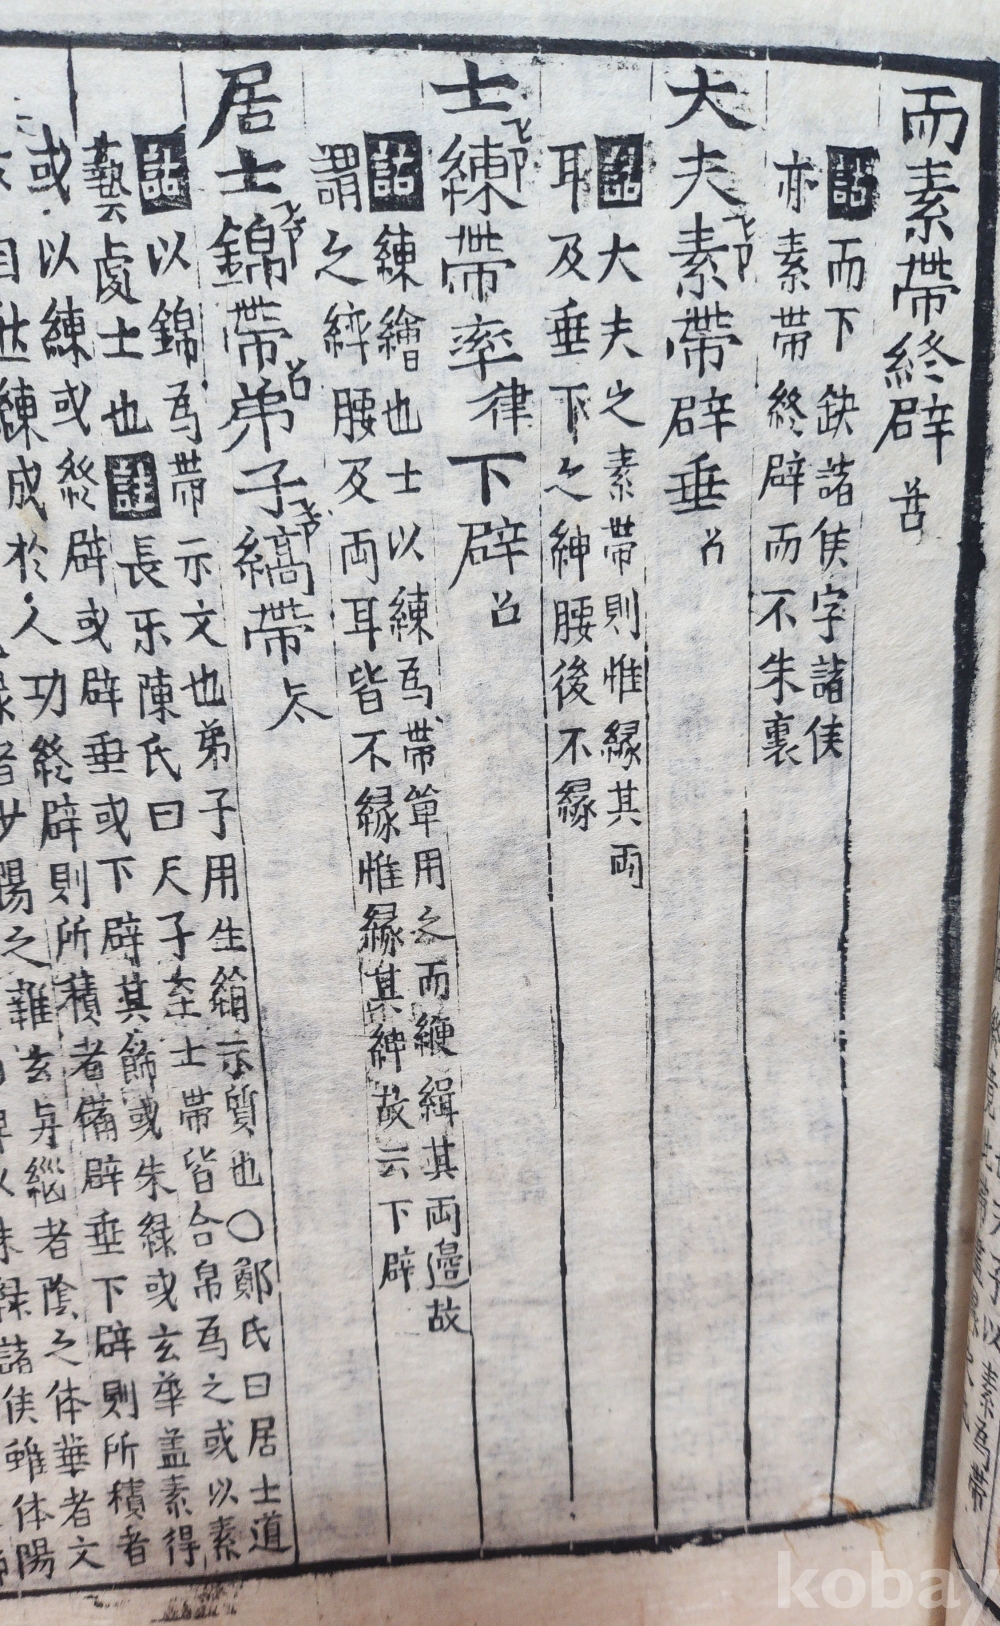 而素帶終辟
詰而下缺諸侯字諸侯
亦素帶終辟而不朱裏
大夫素帶辟垂
詰大夫之素帶則惟緣其兩
耳及垂下之紳腰後不緣
士練帶率律下辟
詰練繒也士以練爲帶單用之而緶緝其兩邊故
謂之繂腰及兩耳皆不緣惟緣其紳故云下辟
居士錦帶弟子縞帶
詰以錦爲帶示文也弟子用生縜示質也○鄭氏曰居士道
藝處士也註長乐陳氏曰天子至士帶皆合帛爲之或以素
或以練或終辟或辟垂或下辟其飾或朱綠或玄華盖素得
於自然練成於人功終辟則所積者備辟垂下辟則所積者
陽之雜玄与緇者陰之体華者文
諸侯雖体陽
kobay